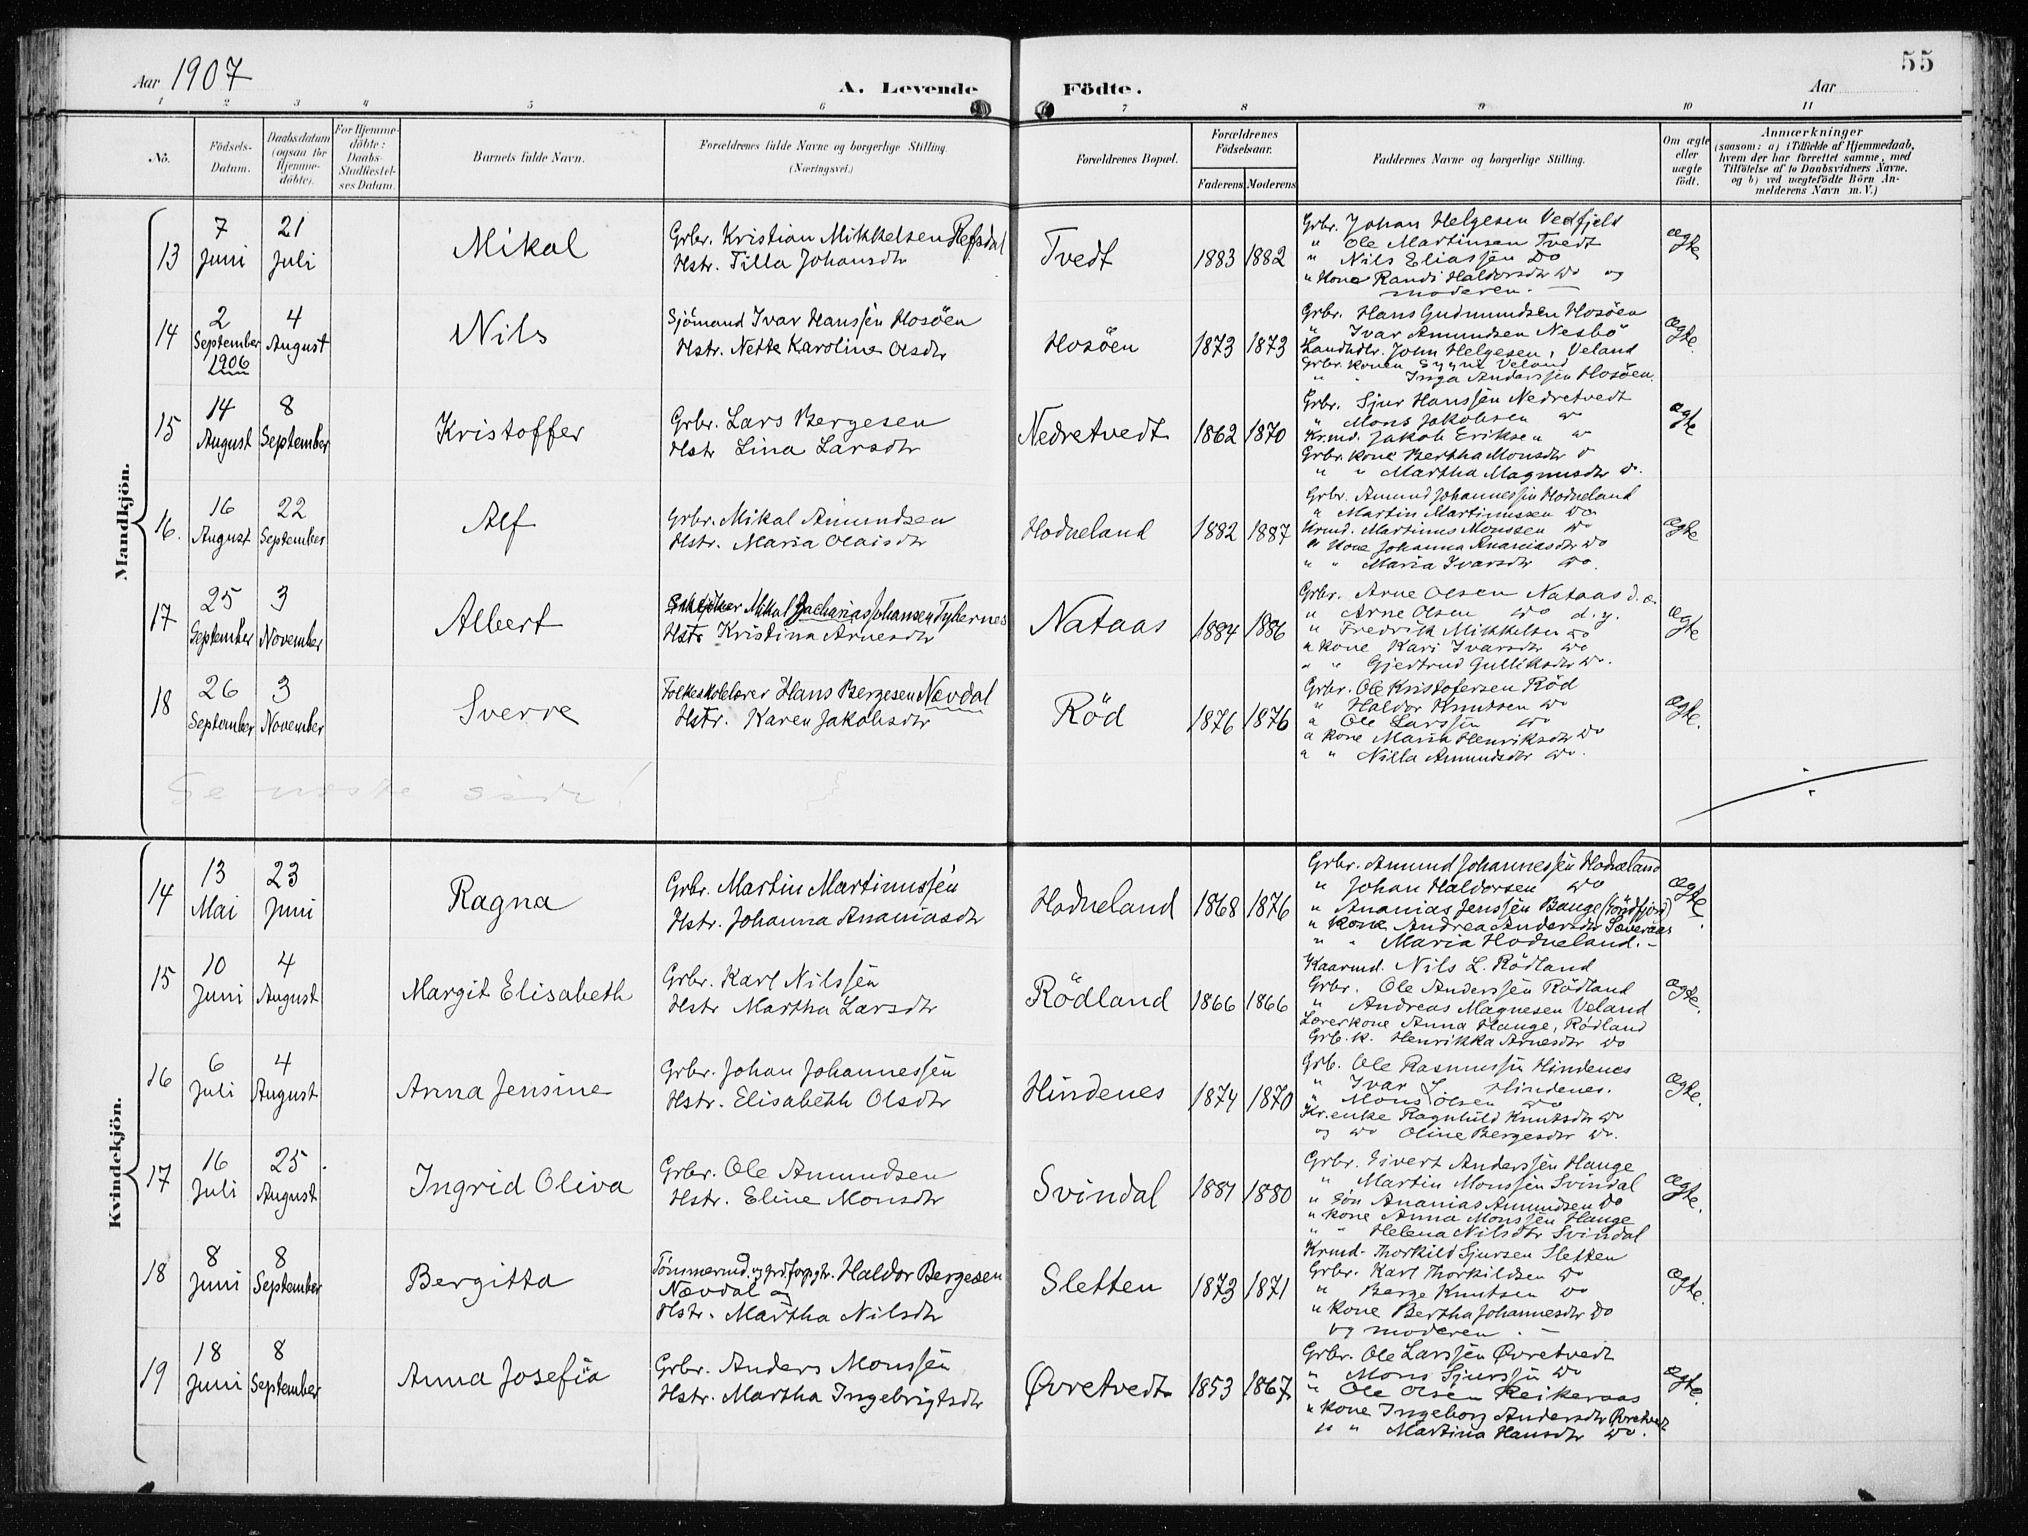 Aar 1907
A. Levende
Födte.
Aar
55
1 2 3 4 5 6 7 8 9 10 11
No.
Födsels-Datum.
Daabsdatum (ogsaa for Hjemme-döbte).
For Hjemme-döbte: Daabs-Stadfestel-ses Datum.
Barnets fulde Navn.
Forældrenes fulde Navne og borgerlige Stilling. (Næringsvei.)
Forældrenes Bopæl.
Forældrenes Födselsaar.
Faderens Moderens
Faddernes Navne og borgerlige Stilling.
Om ægte eller uægte födt.
Anmærkninger
(saasom: a) i Tilfælde af Hjemmedaab, hvem der har forrettet samme, med Tilföielse af to Daabsvidners Navne, og b) ved uægtefödte Börn An-melderens Navn m. V.)
Mandkjön.
13
7 Juni
21 Juli
Mikal
Grbr. Kristian Mikkelsen Refsdal
Hstr. Tilla Johansdtr
Tvedt
1883 1882
Grbr. Johan Helgesen Vedfjeld
" Ole Martinsen Tvedt
" Nils Eliassen Do
" Kone Randi Haldorsdtr Do og
moderen. —
ægte
14
2 September 1906
4 August
Nils
Sjömand Ivar Hanssen Hosöen
Hstr. Nette Karoline Olsdtr
Hosöen
1873 1873
Grbr. Hans Gudmundsen Hosöen
" Ivar Amundsen Nesbö
Landhdlr. John Helgesen, Veland
Grbr. konen Veland
" " Inga Anderssen Hosöen.
ægte.
15
14 August
8 September
Kristoffer
Grbr. Lars Bergesen
Hstr Lina Larsdtr
Nedretvedt
1862 1870
Grbr. Sjur Hanssen Nedretvedt
" Mons Jakobsen Do
Krmd. Jakob Eriksen Do
Grbr. kone Bertha Monsdtr Do
" " Martha Magnusdtr Do.
ægte
16.
16 August
22 September
Alf
Grbr. Mikal Amundsen
Hstr. Maria Olaisdtr
Hodneland
1882 1887
Grbr. Amund Johannessen Hodneland
" Martin Martinussen Do
Krmd. Martinus Monssen Do
" Kone Johanna Ananiasdtr Do
" " Maria Ivarsdtr Do.
ægte
17
25 September
3 November
Albert
Mikal Zacharias Johansen Tyhernes
Hstr Kristina Arnesdtr
Nataas
1884 1886
Grbr. Arne Olsen Nataas d.æ.
" Arne Olsen Do d.y.
" Fredrik Mikkelsen Do
" kone Kari Ivarsdtr Do
" " Gjertrud Gulliksdtr Do.
ægte
18
26 September
3 November
Sverre
Folkeskolelærer Hans Bergesen Nævdal
Hstr. Karen Jakobsdtr
Röd
1876 1876
Grbr. Ole Kristofersen Röd
" Haldor Knudsen Do
" Ole Larssen Do
" kone Maria Henriksdtr Do
" " Nilla Amundsdtr Do.
ægte.
Se neste side!
Kvindekjön.
14
13 Mai
23 Juni
Ragna
Grbr. Martin Martinussen
Hstr. Johanna Ananiasdtr
Hodneland
1868 1876
Grbr. Amund Johannessen Hodneland
" Johan Haldorsen Do
" Ananias Jenssen Bauge (Söndfjord)
" Kone Andrea Andersdtr Sæveraas
" " Maria Hodneland. –
ægte.
15
10 Juni
4 August
Margit Elisabeth
Grbr. Karl Nilssen
Hstr Martha Larsdtr
Rödland
1866 1866
Kaarmd. Nils L. Rödland
Grbr. Ole Anderssen Rödland
" Andreas Magnesen Veland
Lærerkone Anna Hauge, Rödland
Grb. k. Henrikka Arnesdtr Do
ægte.
16
6 Juli
4 August
Anna Jensine
Grbr. Johan Johannessen
Hstr. Elisabeth Olsdtr
Hindenes
1874 1870
Grb. Ole Rasmussen Hindenes
" Ivar L. Hindenes.
" Mons Olsen Do
Kr.enke Ragnhild Knutsdtr Do
og Do Oline Bergesdtr Do.
ægte.
17
16 Juli
25 August
Ingrid Oliva
Grbr. Ole Amundsen
Hstr. Eline Monsdtr
Svindal
1881 1880
Grbr. Sivert Anderssen Hauge
" Martin Monssen Svindal
" Sön Ananias Amundsen Do
" kone Anna Monssen Hauge
" " Helena Nilsdtr Svindal
ægte.
18
8 Juni
8 September
Bergitta
Tömmermd. og Haldor Bergesen
Nævdal og
Hstr. Martha Nilsdtr
Sletten
1873 1871
Krmd. Thorkild Sjursen Sletten
Grbr. Karl Thorkildsen Do
" Berge Knutsen Do
" kone Bertha Johannesdtr Do
og moderen. —
ægte.
19
18 Juni
8 September
Anna Josefia
Grbr. Anders Monssen
Hstr. Martha Ingebrigtsdtr
Øvretvedt
1853 1867.
Grbr. Ole Larssen Øvretvedt
" Mons Sjurssen Do
" Ole Olsen Reikeraas
" kone Ingeborg Andersdtr Øvretvedt
" " Martina Hansdtr Do.
ægte.